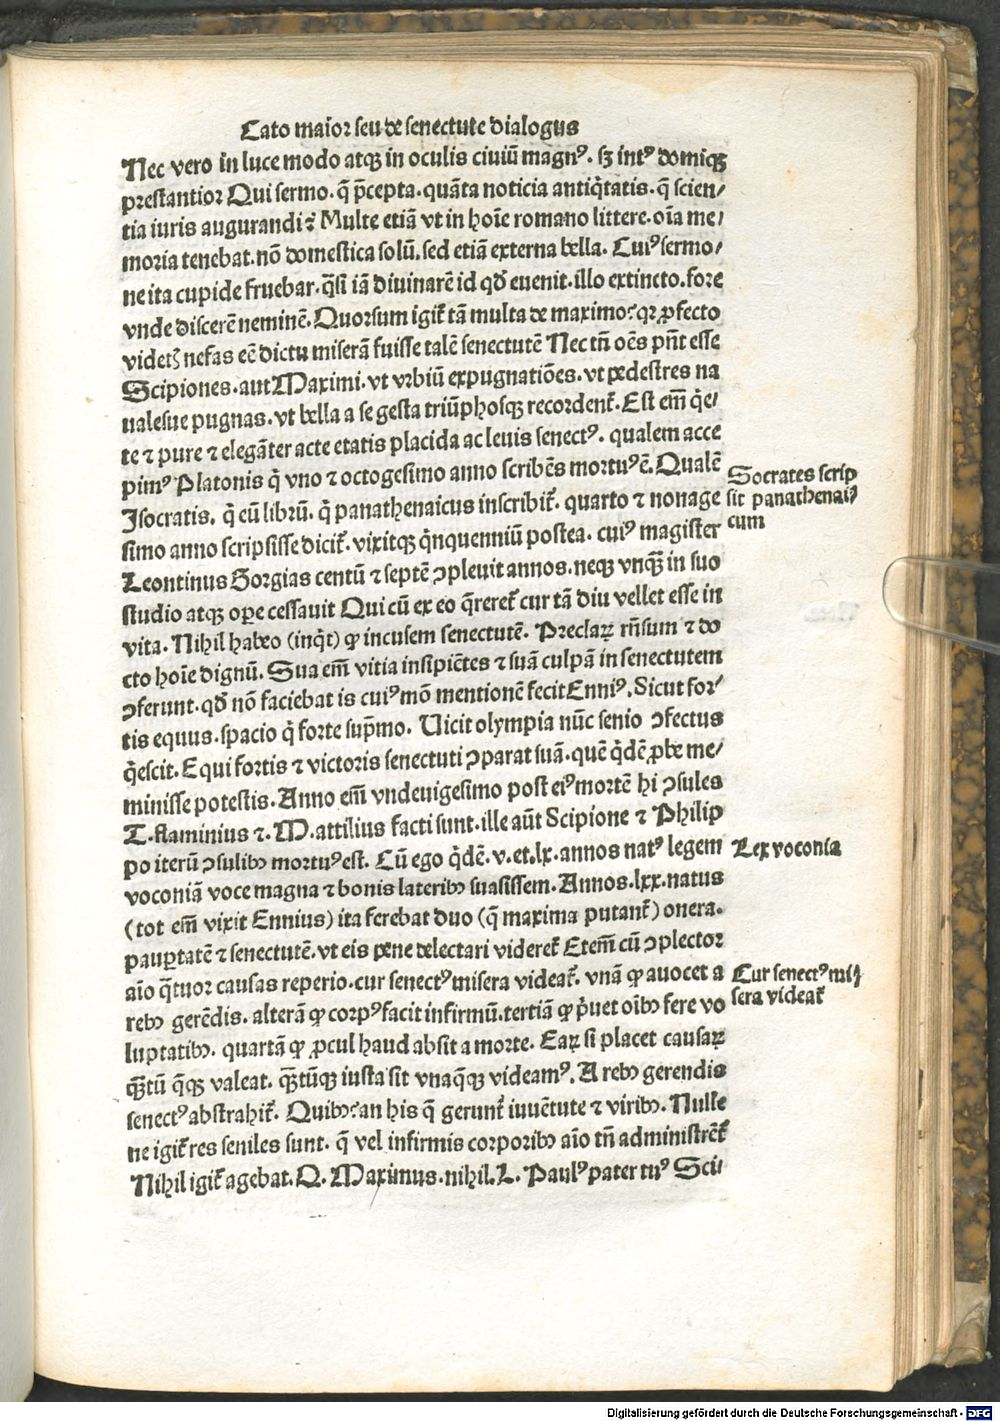 Cato maior seu de senectute dialogus
Nec vero in luce modo atqꝫ in oculis ciuiū magnꝰ. sꝫ intꝰ domiqꝫ
prestantior Qui sermo. q̄ p̄cepta. quāta noticia antiq̇tatis. q̄ scien⸗
tia iuris augurandi⁊ Multe etiā vt in hoīe romano littere. oīa me⸗
moria tenebat. nō domestica solū. sed etiā externa bella. Cuiꝰ sermo⸗
ne ita cupide fruebar. q̄si iā diuinarē id qḋ euenit. illo extincto. fore
vnde discerē neminē. Quorsum igit᷑ tā multa de maximo? qꝛ ꝓfecto
videtꝭ nefas eē dictu miserā fuisse talē senectutē Nec tn̄ oēs pn̄t esse
Scipiones. aut Maximi. vt vrbiū expugnatiōes. vt pedestres na
ualesue pugnas. vt bella a se gesta triūphosqꝫ recordent᷑. Est em̄ q̇e⸗
te ⁊ pure ⁊ elegāter acte etatis placida ac leuis senectꝰ. qualem acce
pimꝰ Platonis q̇ vno ⁊ octogesimo anno scribēs mortuꝰ ē. Qualē
Isocratis. q̇ eū librū. q̇ panathenaicus inscribit᷑. quarto ⁊ nonage
simo anno scripsisse dicit᷑. vixitqꝫ q̇nquenniū postea. cuiꝰ magister
Leontinus Gorgias centū ⁊ septē ꝯpleuit annos. neqꝫ vnqꝫ̄ in suo
studio atqꝫ ope cessauit Qui cū ex eo q̄reret᷑ cur tā diu vellet esse in
vita. Nihil habeo (inq̇t) ꝙ incusem senectutē. Preclarꝝ rn̄sum ⁊ do
cto hoīe dignū. Sua em̄ vitia insipiētes ⁊ suā culpā in senectutem
ꝯferunt. qḋ nō faciebat is cuiꝰ mō mentionē fecit Enniꝰ. Sicut for⸗
tis equus. spacio q̇ forte sup̄mo. Uicit olympia nūc senio ꝯfectus
q̇escit. Equi fortis ⁊ victoris senectuti ꝯparat suā. quē q̇dē ꝓbe me⸗
minisse potestis. Anno em̄ vndeuigesimo post eiꝰ mortē hi ꝯsules
T. flaminius ⁊. M. attilius facti sunt. ille aūt Scipione ⁊ Philip
po iterū ꝯsulibꝫ mortuꝰ est. Cū ego q̇dē. v. et. lx. annos natꝰ legem
voconiā voce magna ⁊ bonis lateribꝫ suasissem. Annos. lxx. natus
(tot em̄ vixit Ennius) ita ferebat duo (q̄ maxima putant᷑) onera.
paup̱tatē ⁊ senectutē. vt eis pene delectari videret᷑ Etem̄ cū ꝯplector
aīo q̄tuor causas reperio. cur senectꝰ misera videat᷑. vnā ꝙ auocet a
rebꝫ gerēdis. alterā ꝙ corpꝰ facit infirmū. tertiā ꝙ ṗuet oībꝫ fere vo
luptatibꝫ. quartā ꝙ ꝓcul haud absit a morte. Eaꝝ si placet causaꝝ
qꝫ̄tū q̄qꝫ valeat. qꝫ̄tūqꝫ iusta sit vnaq̄qꝫ videamꝰ. A rebꝫ gerendis
senectꝰ abstrahit᷑. Quibꝫ? an his q̄ gerunt᷑ iuuētute ⁊ viribꝫ. Nulle
ne igit᷑ res seniles sunt. q̄ vel infirmis corporibꝫ aīo tn̄ administrēt᷑
Nihil igit᷑ agebat. Q. Maximus. nihil. L. Paulꝰ pater tuꝰ Sci⸗
Socrates scrip
sit panathenai⸗
cum
Lex voconia
Cur senectꝰ mi⸗
sera videat᷑
Digitalisierung gefördert durch die Deutsche Forschungsgemeinschaft - DFG